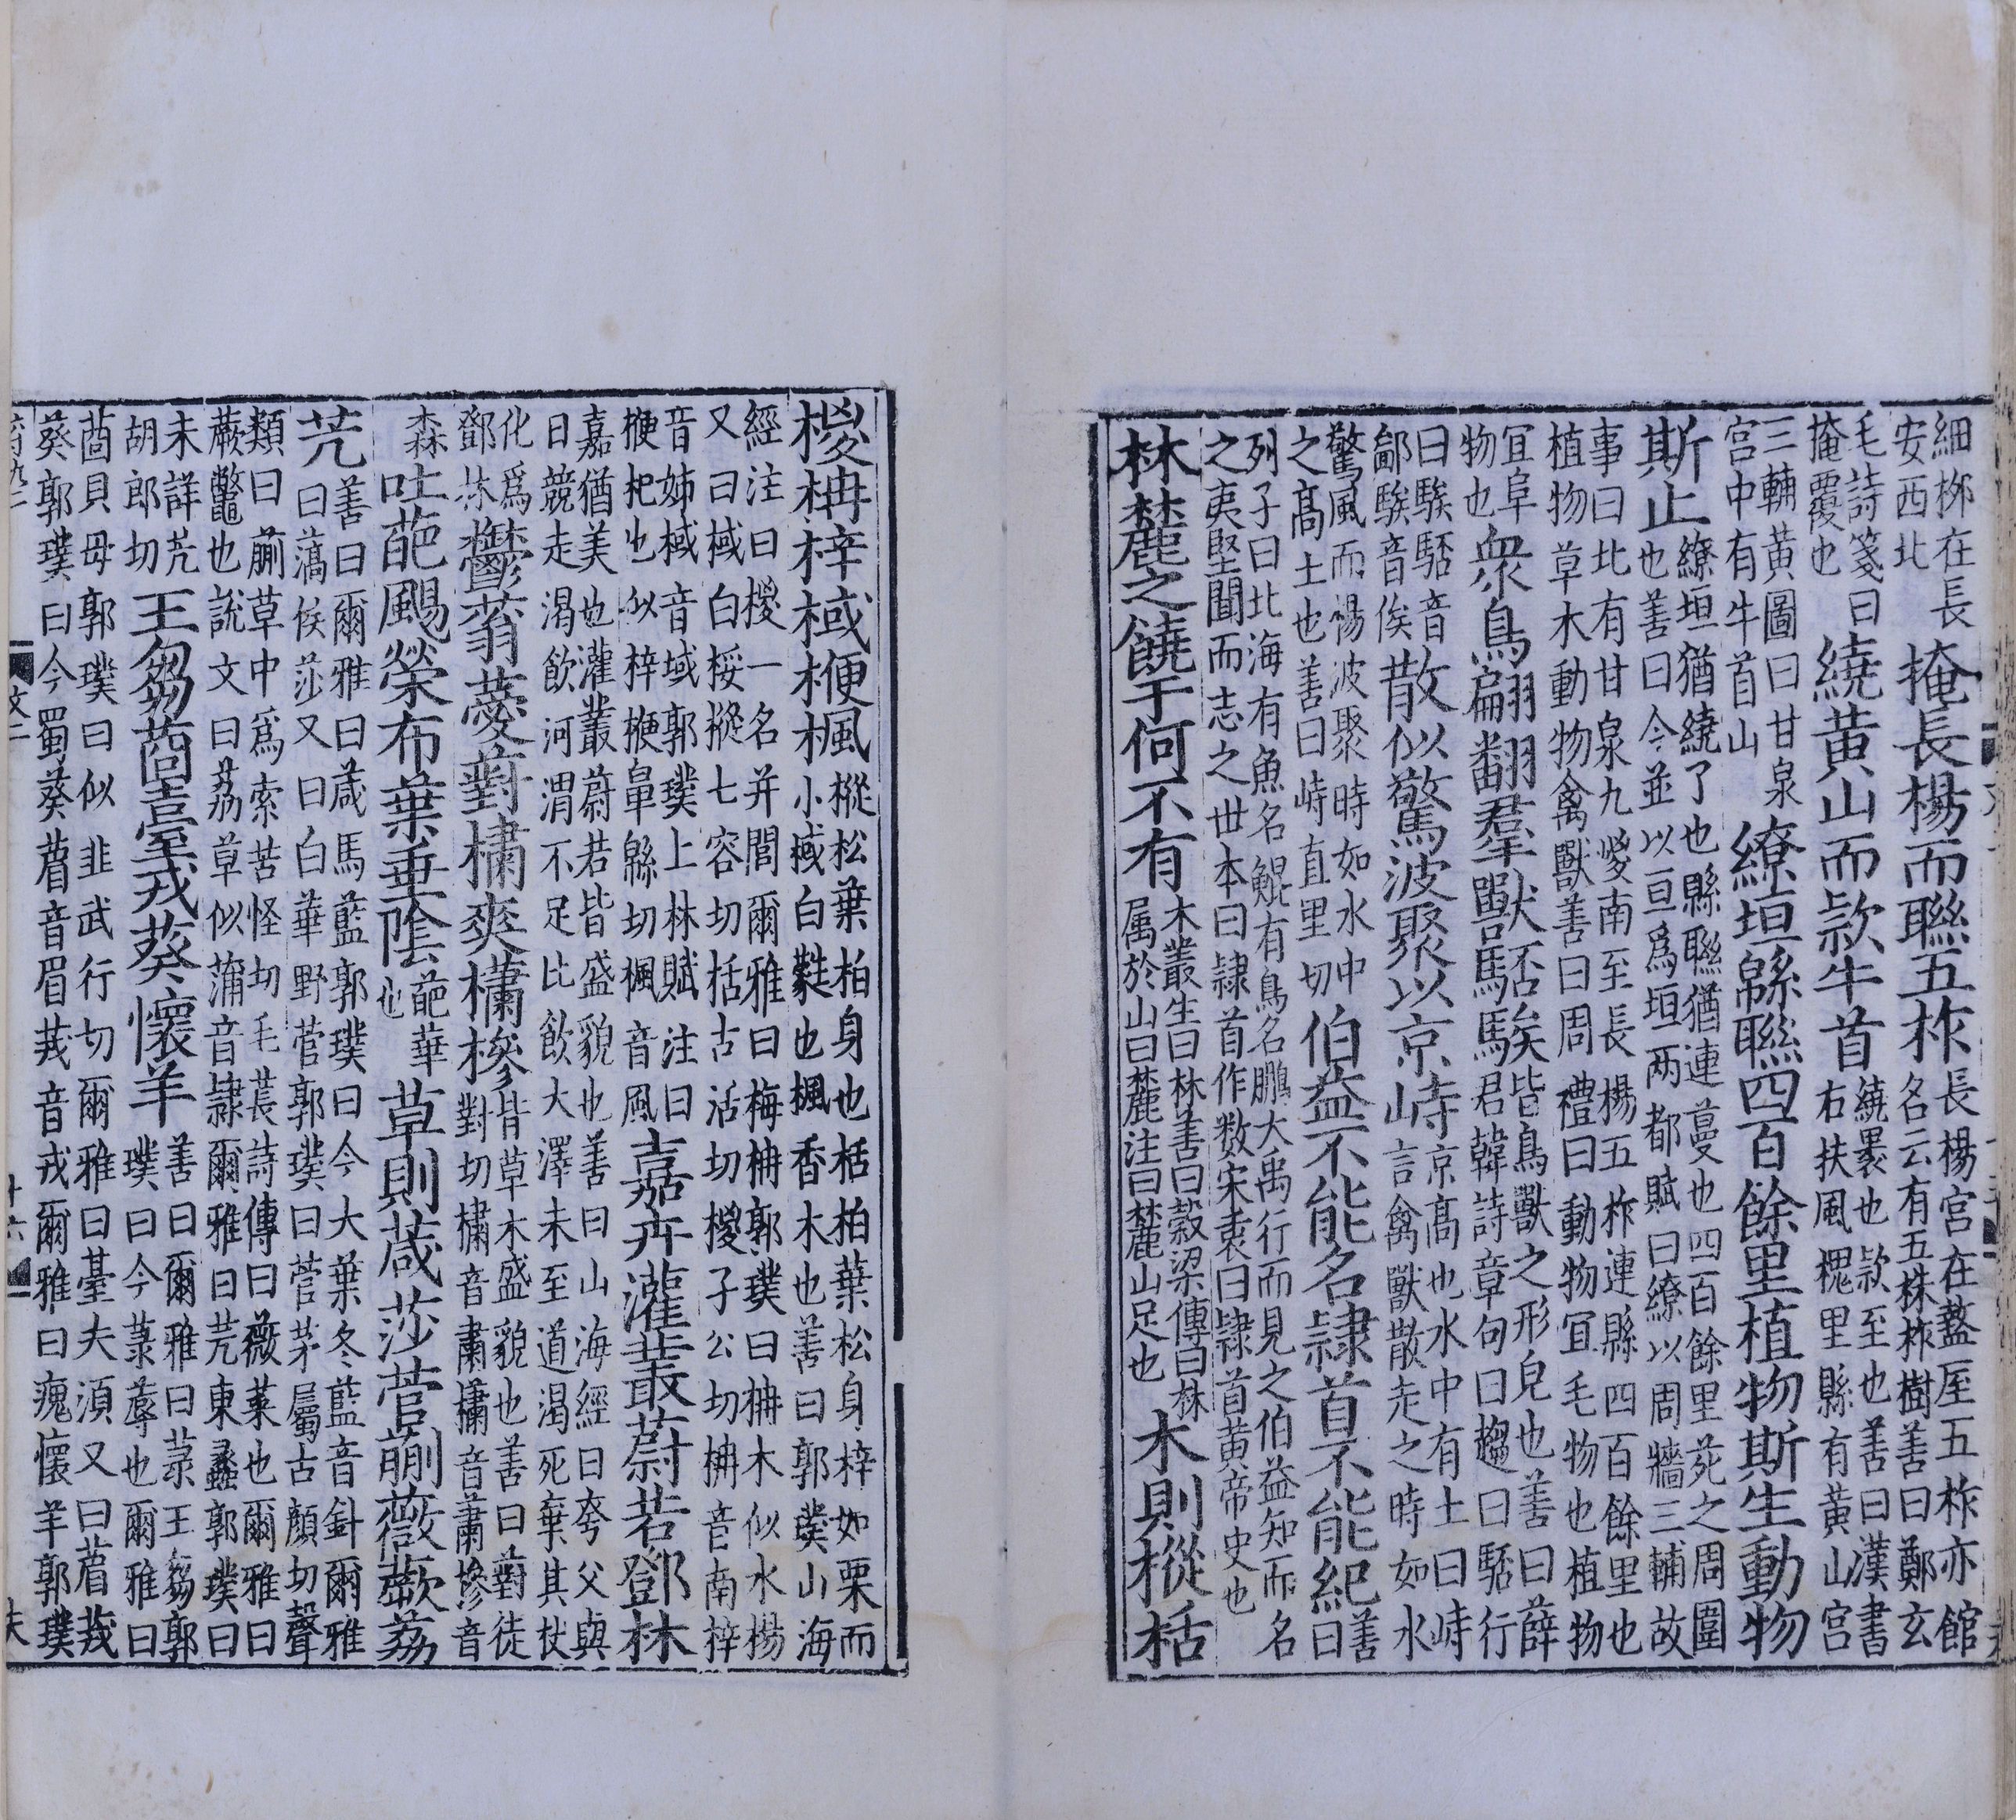 細桞在長
安西北
掩長楊而聯五柞
長楊宮在盩厔五柞亦館
名云有五株柞樹善曰鄭玄
毛詩箋曰
掩覆也
繞黄山而款牛首
繞褁也款至也善曰漢書
右扶風槐里縣有黄山宮
三輔黄圖曰甘泉
宮中有牛首山
繚垣緜聯四百餘里植物斯生動物
斯止
繚垣猶繞了也緜聯猶連蔓也四百餘里苑之周圍
也善曰今並以亘爲垣两都賦曰繚以周牆三輔故
事曰北有甘泉九嵕南至長楊五柞連緜四百餘里也
植物草木動物禽獸善曰周禮曰動物宜毛物也植物
宜阜
物也
衆鳥翩翻羣獸駓騃
皆鳥獸之形皃也善曰薛
君韓詩章句曰趨曰駓行
曰騃駓音
鄙騃音俟
散似驚波聚以京峙
京髙也水中有土曰峙
言禽獸散走之時如水
驚風而揚波聚時如水中
之髙土也善曰峙直里切
伯益不能名隷首不能紀
善
曰
列子曰北海有魚名鯤有鳥名鵬大禹行而見之伯益知而名
之夷堅聞而志之世本曰隷首作数宋衷曰隷首黄帝史也
林麓之饒于何不有
木叢生曰林善曰穀梁傳曰林
属於山曰麓注曰麓山足也
木則樅栝
椶柟梓棫楩楓
樅松葉柏身也栝柏葉松身梓如栗而
小棫白蕤也楓香木也善曰郭璞山海
經注曰椶一名并閭爾雅曰梅柟郭璞曰柟木似水楊
又曰棫白桵樅七容切栝古活切椶子公切柟音南梓
音姊棫音域郭璞上林賦注曰
楩杞也似梓楩鼻緜切楓音風
嘉卉灌叢蔚若鄧林
嘉猶美也灌叢蔚若皆盛貌也善曰山海經曰夸父與
日競走渴飲河渭不足北飲大澤未至道渴死棄其杖
化爲
鄧林
鬱蓊薆薱橚爽櫹槮
皆草木盛貌也善曰薱徒
對切橚音肅櫹音蕭槮音
森
吐葩颺榮布葉垂陰
葩華
也
草則葴莎菅蒯薇蕨荔
苀
善曰爾雅曰葴馬藍郭璞曰今大葉冬藍音針爾雅
曰薃侯莎又曰白華野菅郭璞曰菅茅屬古顏切聲
類曰蒯草中爲索苦怪切毛萇詩傳曰薇菜也爾雅曰
蕨虌也說文曰荔草似蒲音隷爾雅曰苀東蠡郭璞曰
未詳苀
胡郎切
王芻莔臺戎葵懷羊
善曰爾雅曰菉王芻郭
璞曰今菉蓐也爾雅曰
莔貝毋郭璞曰似韭武行切爾雅曰臺夫湏又曰葿茙
葵郭璞曰今蜀葵葿音眉茙音戎爾雅曰瘣懷羊郭璞